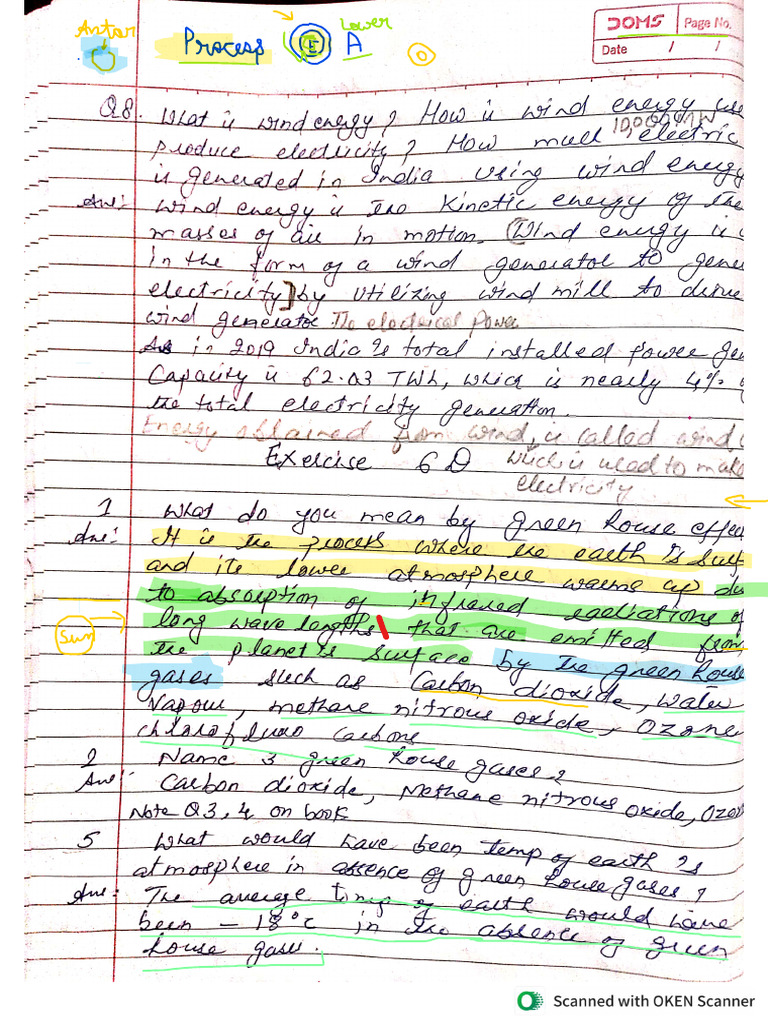 Antar
Process E A Lower
DOMS Page No.
Date / /
Q8. What is wind energy? How is wind energy use
10,000 MW
produce electricity? How much electric
is generated in India using wind energy
Ans: Wind energy is the Kinetic energy of the
masses of air in motion. Wind energy is
in the form of a wind generator to gene
electricity] by utilizing wind mill to
wind generator. The electrical Power
in 2019 India's total installed power gen
Capacity is 62.03 TWh, which is nearly 4%
the total electricity generation.
Energy obtained from wind, is called wind
Exercise 6D which is used to make
electricity
1 What do you mean by green house effe
Ans: It is the process where the earth's surf
and its lower atmosphere warms up du
to absorption of infrared of
long wave lengths that are emitted from
Sun
the planet's surface by the green house
gases such as Carbon dioxide, Water
Vapour, methane nitrous oxide, Ozone
chloro fluro carbons
2 Name 3 green house gases?
Ans: Carbon dioxide, Methane nitrous oxide, Ozo
Note Q3,4 on book
5 What would have been temp of earth's
atmosphere in absence of green house gases?
Ans: The average temp of earth would have
been - 18°C in the absence of green
house gases.
Scanned with OKEN Scanner